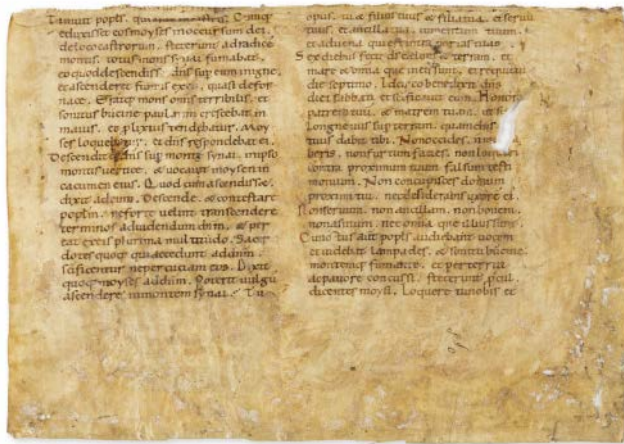 Timuit popls. qui erat in castris. Cumq;
eduxisset eos moyses in occursum dei.
de loco castrorum. steterunt ad radice
montis. totus mons synai fumabat.
eo quod descendiss& dns sup eum in igne.
et ascenderet fumus ex eo. quasi de for
nace. Eratq; mons omis terribilis. et
sonitus bucine paulatim crescebat in
maius. et plixius tendebatur. Moy
ses loquebatur. et dns respondebat ei.
Descenditq; dns sup monte synai. in ipso
montis vertice. & vocavit moysen in
cacumen eius. Quod cum ascendisse.
dixit ad eum. Descende. & contestare
poplm. ne forte velint transcendere
terminos ad videndum dnm. & per
eat ex eis plurima multitudo. Sacer
dotes quoq; qui accedunt ad dnm.
scificentur ne percutiam eos. Dixit
quoq; moyses ad dnm. Poterit vulgus
ascendere in montem synai. Tu
opus. tu & filius tuus & filia tua. et servus
tuus. et ancilla tua. iumentum tuum.
et advena qui est intra portas tuas.
Sex diebus fecit ds celum & terram. et
mare & omnia que in eis sunt. et requievit
die septimo. Idcirco benedixit dns
diei sabbati et scificavit eum. Honora
patrem tuu. & matrem tuam. ut sis
longevus sup terram. quam dns
tuus dabit tibi. Non occides. non
beris. non furtum facies. non loqueris
contra proximum tuum falsum testi
monium. Non concupisces domum
proximi tui. nec desiderabis uxore ei.
non servum. non ancillam. non bovem.
non asinum. nec omnia que illius sunt.
Cunctus aut popls audiebant vocem
et videbat lampades. & sonitu bucine
montemq; fumante. et perterriti
ac pavore concussi. steterunt pcul
dicentes moysi. Loquere tu nobis et